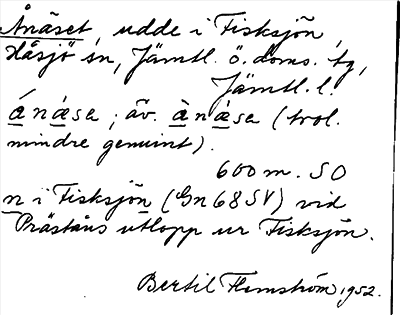 Ånäset, udde i Fisksjön,
Håsjö sn, Jämtl. ö. doms. tg,
Jämtl. l.
á̱nä̱sa; äv. à̱ná̱sa (trol.
mindre genuint).
600 m. SO
n i Fisksjön (Gn 68 SV) vid
Präståns utlopp ur Fisksjön.
Bertil Flemström 1952.